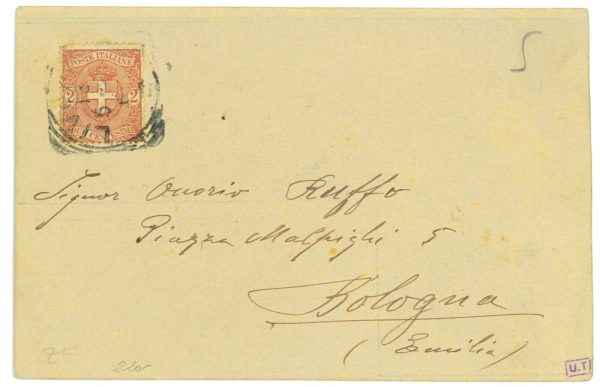 S
POSTE ITALIANE
2 2
DUE CENTESIMI
Signor Onorio Ruffo
Piazza Malpighi 5
Bologna
(Emilia)
ZF
220
U.T